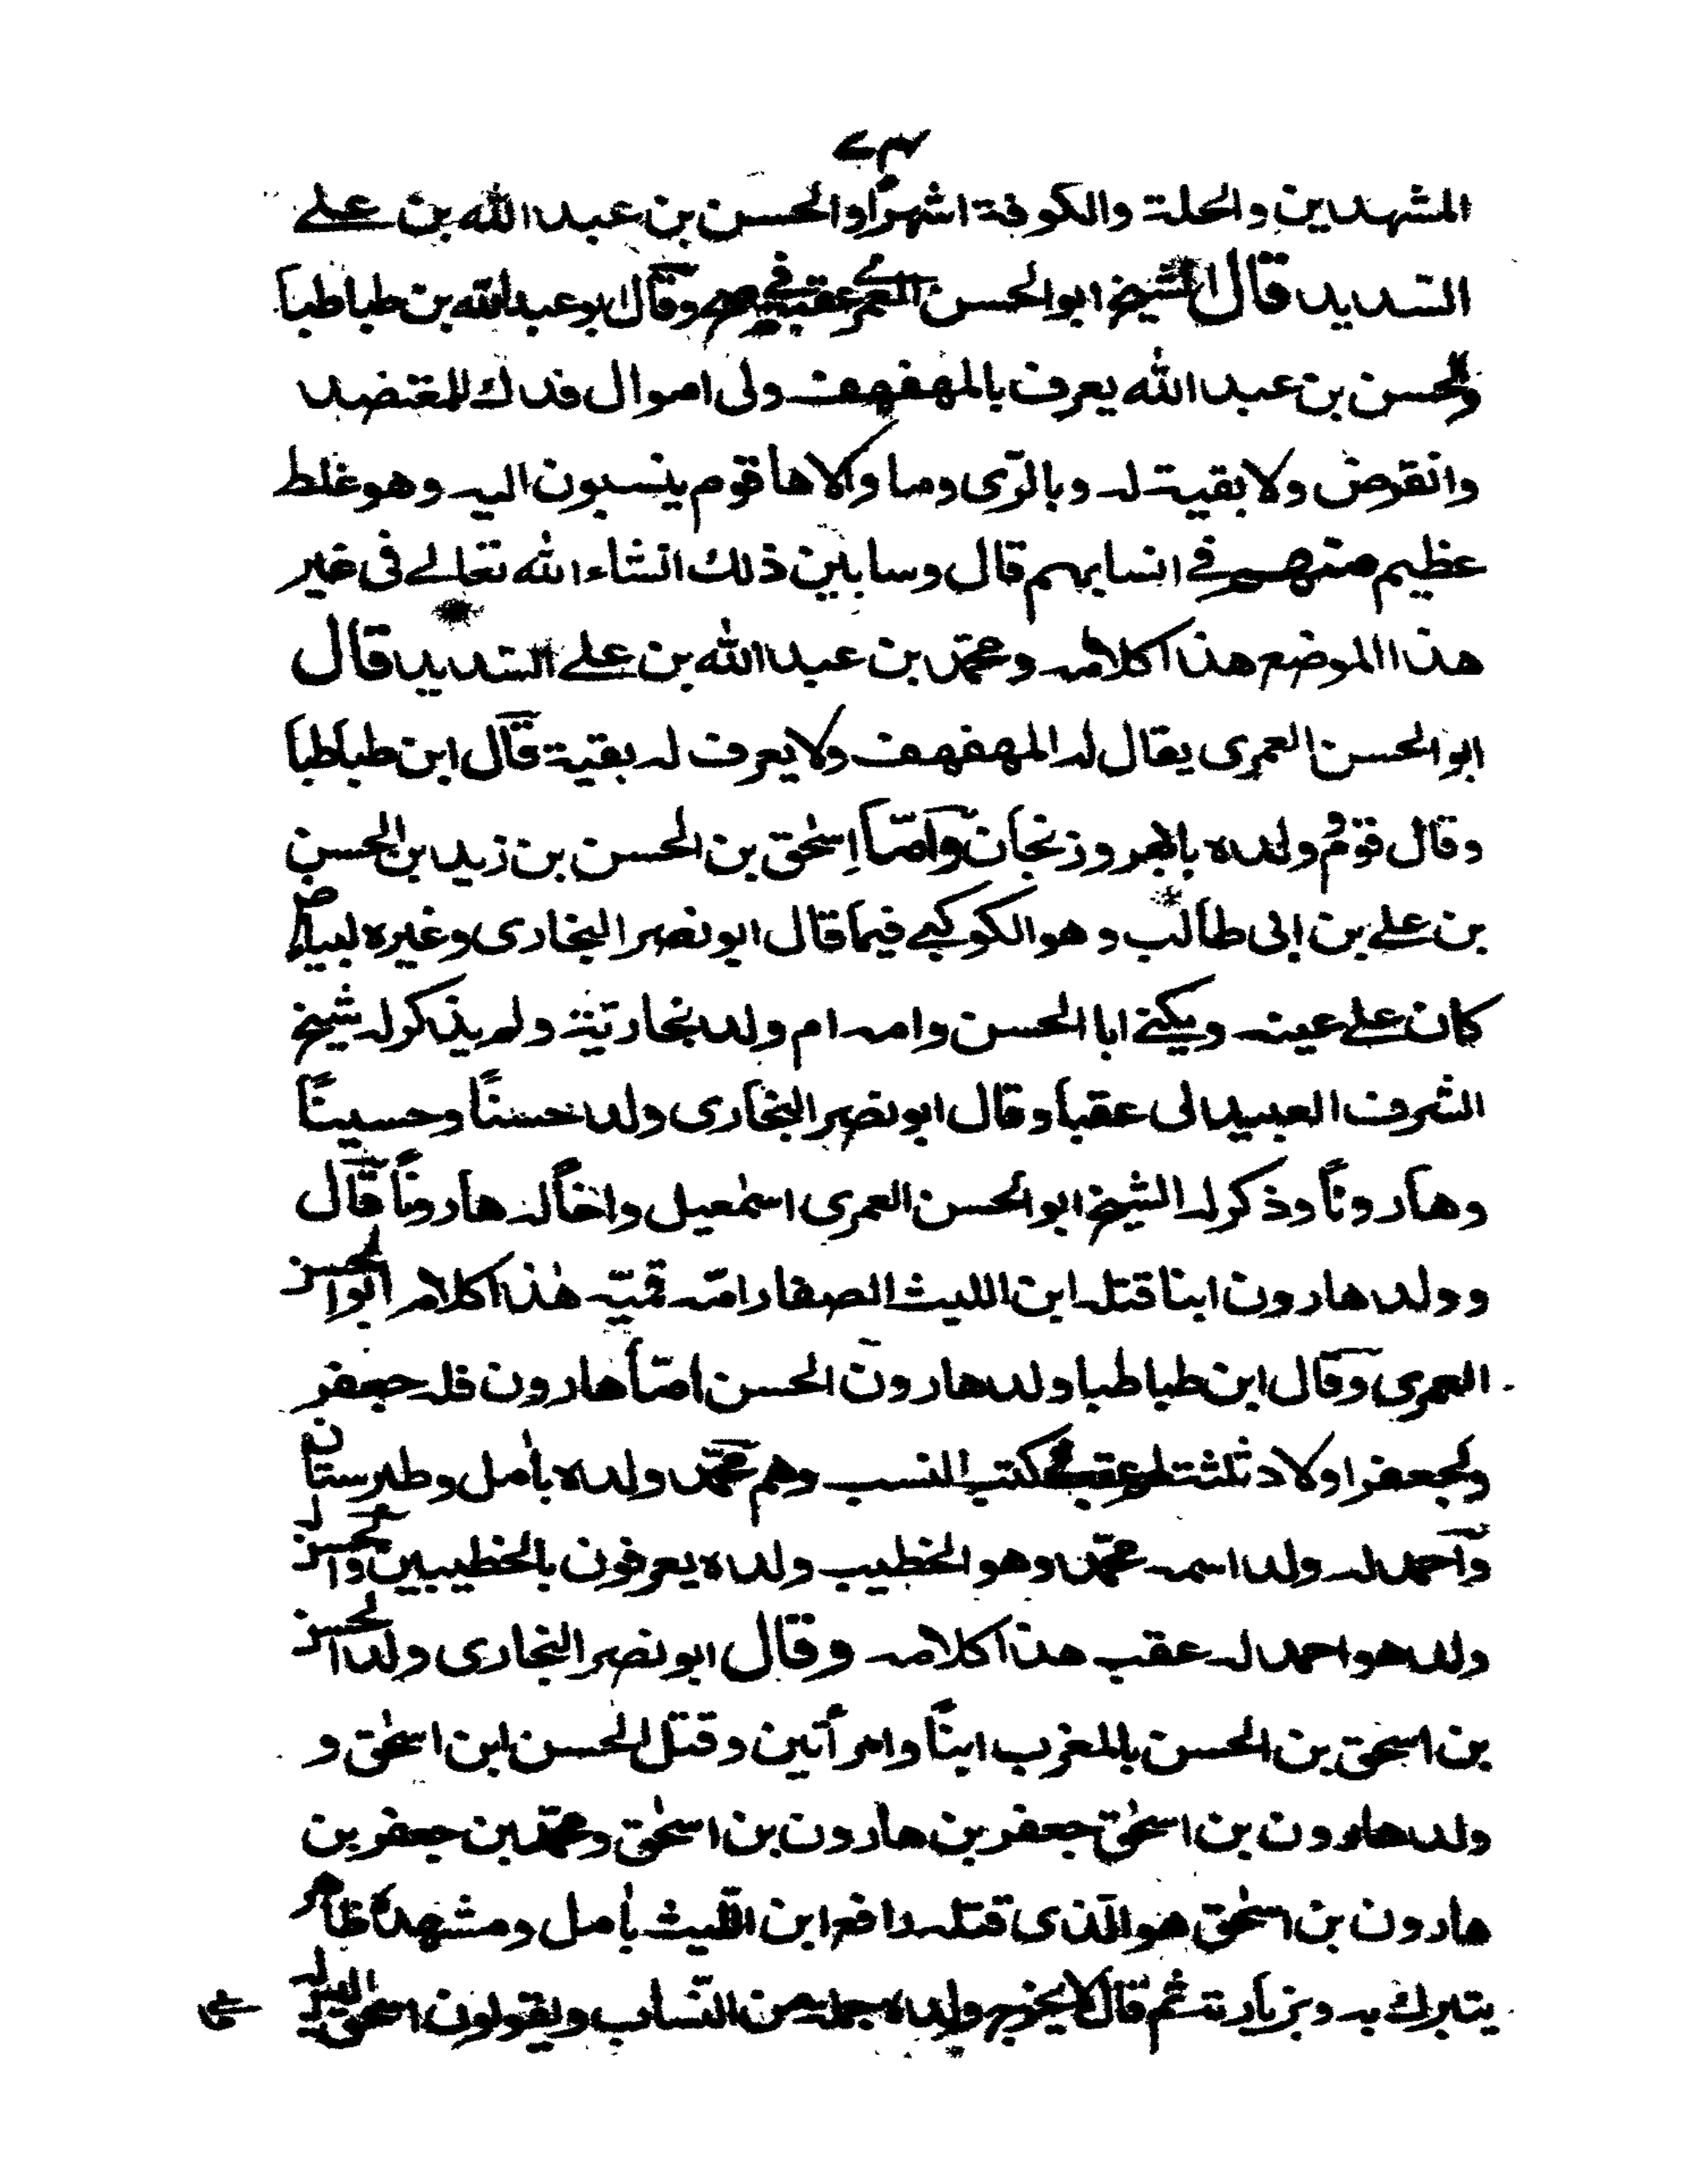 المشهدين والحلة والكوفة اشهر او الحسن بن عبد الله بن علے
الشديد قال الشيخ ابو الحسن العمرى عقبه فى وقال ابو عبد الله بن طباطبا
والحسن بن عبد الله يعرف بالمهفهف ولى اموال فدك للمعتضد
وانقرض ولا بقية له وبالرّى وما والاها قوم ينسبون اليه وهو غلط
عظيم منهم فے انسابهم قال وسابين ذلك انشاء الله تعالے فى غير
هذا الموضع هذا كلامه ومحمّد بن عبد الله بن علے الشديد قال
ابو الحسن العمرى يقال له المهفهف ولا يعرف له بقية قال ابن طباطبا
وقال قوم ولده بابهر وزنجان وامّا اسحٰق بن الحسن بن زيد بن الحسن
بن علے بن ابى طالب وهو الكوكبے فيما قال ابو نصر البخارى وغيره لبياض
كان علے عينه ويكنے ابا الحسن وامه ام ولد بخاريّة ولم يذكر له شيخ
الشرف العبيدلى عقبا وقال ابو نصر البخارى ولد حسنًا وحسينًا
وهارونًا وذكر له الشيخ ابو الحسن العمرى اسمٰعيل واخًا له هارونًا قال
وولد هارون ابنا قتله ابن الليث الصفار امّه قميّه هٰذا كلام ابو الحسن
العمرى وقال ابن طباطبا ولد هارون الحسن امّا هارون فله جعفر
ولجعفر اولاد ثلثة لهم عقب فى كتب النسب وهم محمّد ولده بآمل وطبرستان
وآحمد له ولد اسمه محمّد وهو الخطيب ولده يعرفون بالخطيبين والحسن له
ولد هو احمد له عقب هذا كلامه وقال ابو نصر البخارى ولد الحسن
بن اسحق بن الحسن بالمغرب ابنًا وامرأتين وقتل الحسن ابن اسحٰق و
ولد هارون بن اسحٰق جعفر بن هارون بن اسحٰق ومحمّد بن جعفر بن
هارون بن اسحٰق هو الّذى قتله رافع ابن اللّيث بآمل ومشهده ظاهر
يتبرك به وبزيارته ثم قال لا يخرج ولده جملة من النسّاب ويقولون اسحٰق ليس له